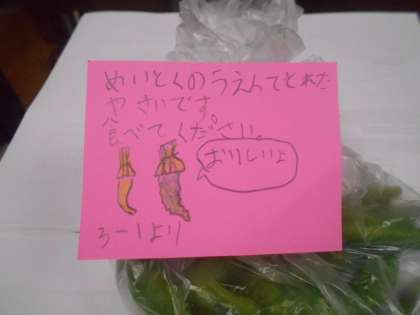 めいとくのうえんでとれた
やさいです。
食べてください。
おいしいよ
ろーりより